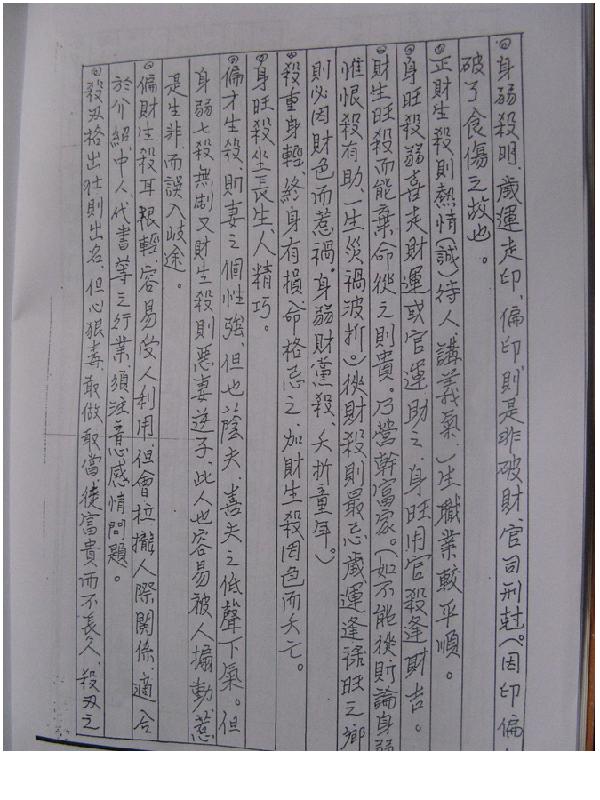 ◎身弱殺明，歲運走印，偏印則是非破財，官司刑尅。（因印偏
破了食傷之故也。
◎正財生殺則熱情（誠）待人講義氣，一生職業較平順。
◎身旺殺弱喜走財運或官運助之，身旺用官殺逢財吉。
◎財生旺殺而能棄命從之則貴。乃營幹富家。（如不能從則論身弱
惟恨殺有助，一生災禍波折。）從財殺則最忌歲運逢祿旺之鄉
則必因財色而惹禍。身弱財黨殺，夭折童年。）
◎殺重身輕終身有損，命格忌之，加財生殺因色而夭亡。
◎身旺殺坐長生，人精巧。
◎偏才生殺，則妻之個性強但也蔭夫，善夫之低聲下氣。但
身弱七殺無制又財生殺則惡妻逆子，此人也容易被人搧動，惹
是生非，而誤入歧途。
◎偏財生殺耳根輕，容易受人利用，但會拉攏人際關係，適合
於介紹，中人代書等之行業，須注意感情問題。
◎殺刃格出仕則出名，但心狠毒，敢做敢當，徒富貴而不長久，殺刃之